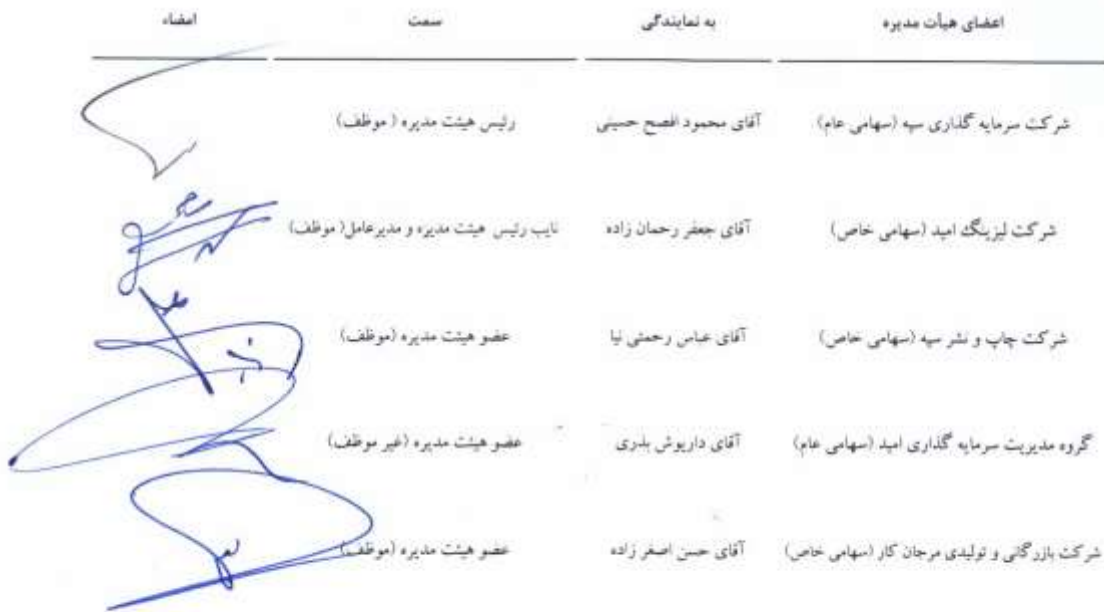 اعضای هیأت مدیره به نمایندگی سمت امضاء
شرکت سرمایه گذاری سپه (سهامی عام) آقای محمود افصح حسینی رئیس هیئت مدیره ( موظف)
شرکت لیزینگ امید (سهامی خاص) آقای جعفر رحمان زاده نایب رئیس هیئت مدیره و مدیرعامل( موظف)
شرکت چاپ و نشر سپه (سهامی خاص) آقای عباس رحمتی نیا عضو هیئت مدیره (موظف)
گروه مدیریت سرمایه گذاری امید (سهامی عام) آقای داریوش بذری عضو هیئت مدیره (غیر موظف)
شرکت بازرگانی و تولیدی مرجان کار (سهامی خاص) آقای حسن اصغر زاده عضو هیئت مدیره (موظف)